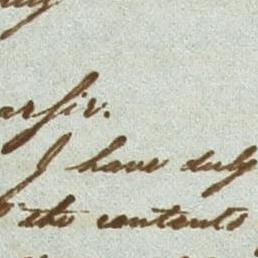 ar Sir.
I have duly
the contents